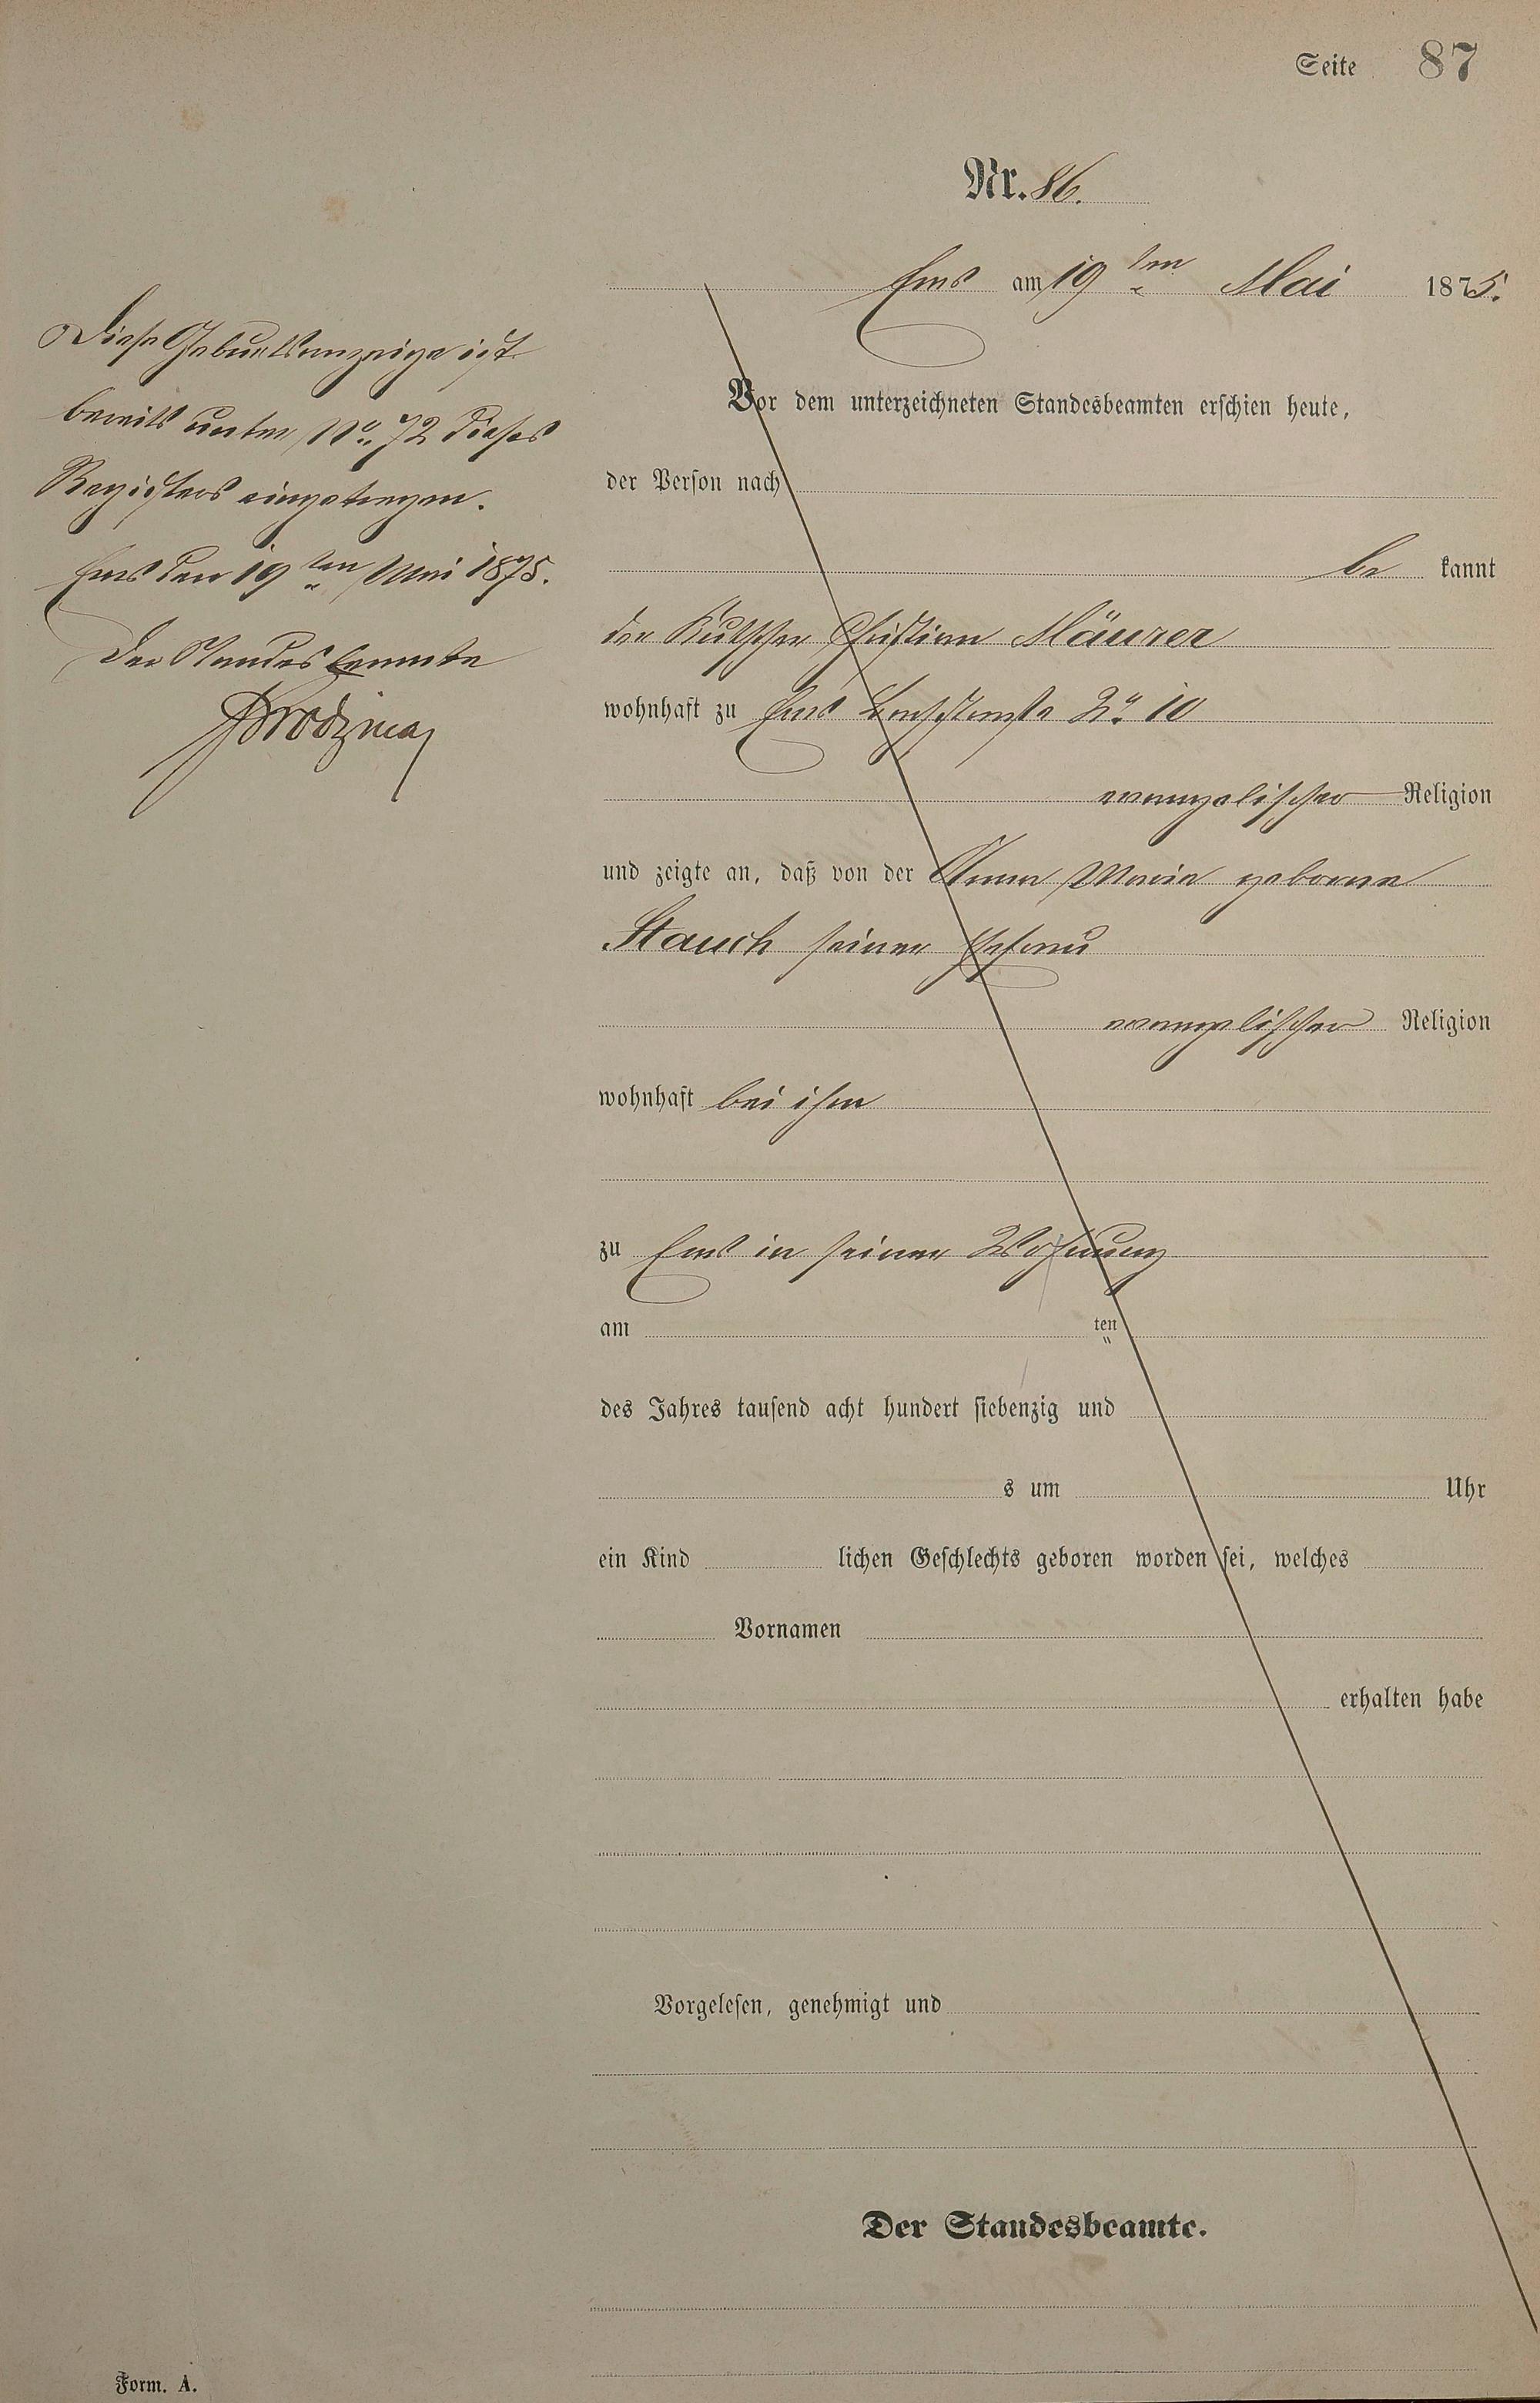 Seite 87
Nr. 86.
Ems am 19ten Mai 1875.
Diese Geburtsanzeige ist
bereits unter No. 72 dieses
Registers eingetragen.
Ems den 19ten Mai 1875.
Der Standesbeamte
Vor dem unterzeichneten Standesbeamten erschien heute,
der Person nach
be kannt
der Kutscher Christian Mäurer
wohnhaft zu Ems No 10
evangelischer Religion
und zeigte an, daß von der Anna Maria geborene
Stauch seiner Ehefrau
evangelischer Religion
wohnhaft bei ihm
zu Ems in seiner Wohnung
am ten
des Jahres tausend acht hundert siebenzig und
s um Uhr
ein Kind lichen Geschlechts geboren worden sei, welches
Vornamen
erhalten habe
Vorgelesen, genehmigt und
Der Standesbeamte.
Form. A.